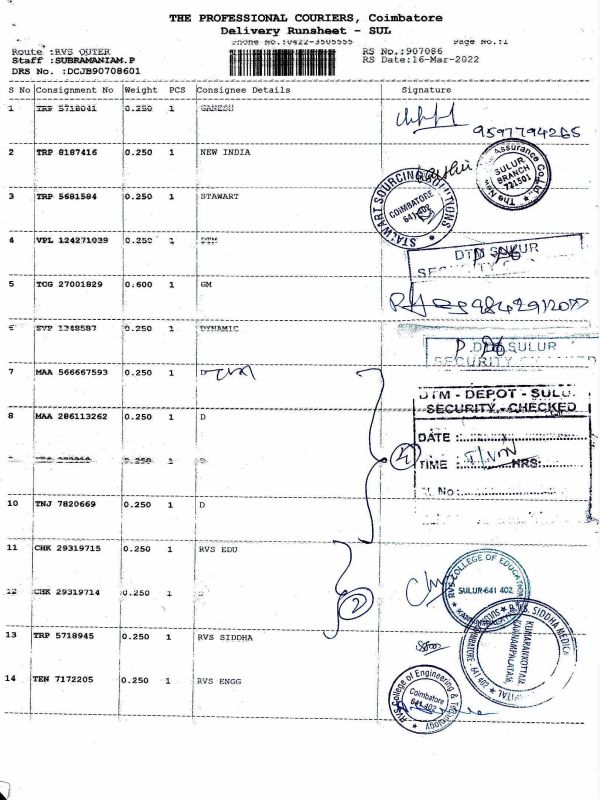 THE PROFESSIONAL COURIERS, Coimbatore
Delivery Runsheet - SUL
Phone No.:0422-3505555 Page No.:1
Route :RVS OUTER RS No.:907086
Staff :SUBRAMANIAM.P RS Date:16-Mar-2022
DRS No. :DCJB90708601
S No Consignment No Weight PCS Consignee Details Signature
1 TRP 5718041 0.250 1 GANESH
9597794265
2 TRP 8187416 0.250 1 NEW INDIA
The New Assurance Co. Ltd. SULUR BRANCH 721501
3 TRP 5681584 0.250 1 STAWART
STALWART SOURCING SOLUTIONS COIMBATORE 641 402
4 VPL 124271039 0.250 1 DTM
DTM SULUR
SECURITY
5 TCG 27001829 0.600 1 GM
6 SVP 1348587 0.250 1 DYNAMIC
DTM SULUR
SECURITY CHECKED
7 MAA 566667593 0.250 1 D
DTM - DEPOT - SULU
SECURITY - CHECKED
8 MAA 286113262 0.250 1 D
DATE :
4
TIME : HRS:
0.250 1 D
No:
10 TNJ 7820669 0.250 1 D
11 CHK 29319715 0.250 1 RVS EDU
RVS COLLEGE OF EDUCATION SULUR-641 402
12 CHK 29319714 0.250 1
2
R.V.S. SIDDHA MEDICA KUMARANKOTTAM KANNAMPALAYAM COIMBATORE - 641 402
13 TRP 5718945 0.250 1 RVS SIDDHA
14 TEN 7172205 0.250 1 RVS ENGG
RVS College of Engineering & Technology Coimbatore 641 402